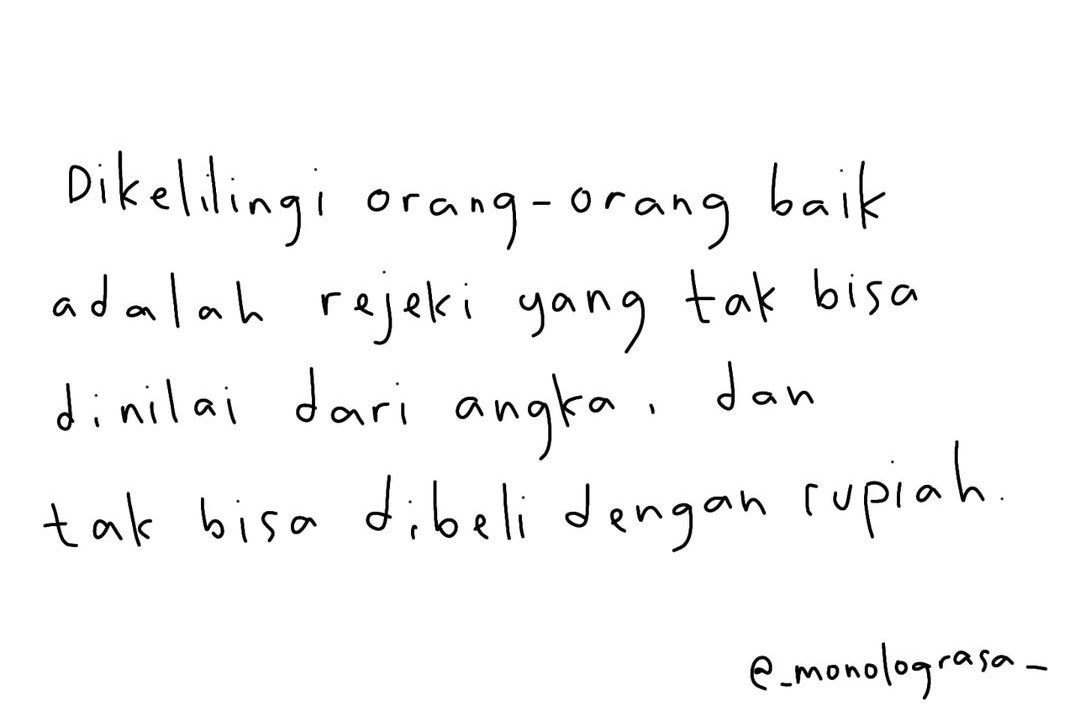 Dikelilingi orang-orang baik
adalah rejeki yang tak bisa
dinilai dari angka, dan
tak bisa dibeli dengan rupiah.
@_monolograsa_